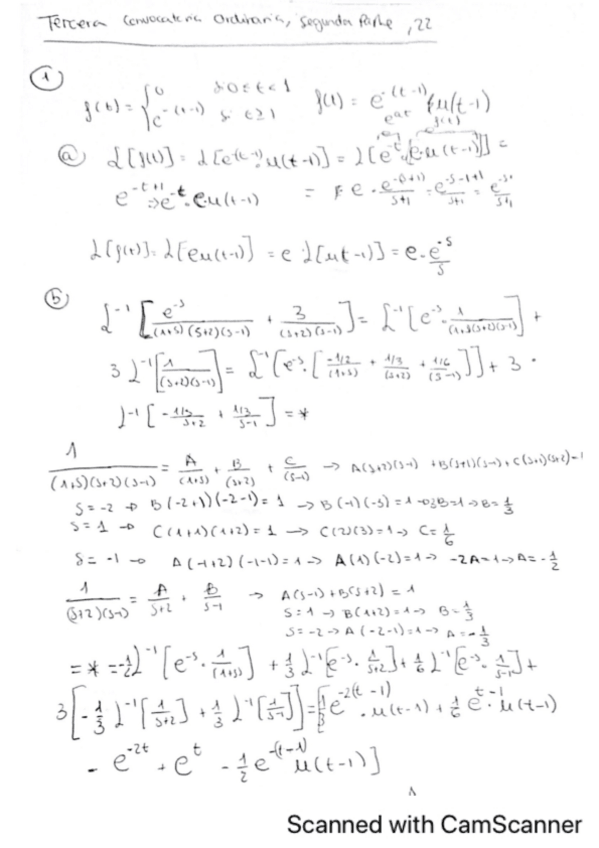 Tercera Convocatoria Ordinaria, Segunda Parte, 22
① f(t) = { 0 si 0≤t<1
e^-(t-1) si t≥1 f(t) = e^-(t-1) u(t-1)
e^at f(t)
ⓐ L[f(t)] = L[e^-(t-1) u(t-1)] = L[e^-t · [e·u(t-1)]] =
e^-t+1 ⇒ e^-t · e u(t-1) = e · e^-(s+1)/(s+1) = e^(-s-1+1)/(s+1) = e^-s/(s+1)
L[f(t)] = L[e u(t-1)] = e L[u(t-1)] = e · e^-s/s
ⓑ L^-1 [ e^-s/((1+s)(s+2)(s-1)) + 3/((s+2)(s-1)) ] = L^-1 [ e^-s · 1/((1+s)(s+2)(s-1)) ] +
3 L^-1 [ 1/((s+2)(s-1)) ] = L^-1 [ e^-s · [ (-1/2)/(1+s) + (1/3)/(s+2) + (1/6)/(s-1) ] ] + 3 ·
L^-1 [ - (1/3)/(s+2) + (1/3)/(s-1) ] = *
1/((1+s)(s+2)(s-1)) = A/(1+s) + B/(s+2) + C/(s-1) → A(s+2)(s-1) + B(s+1)(s-1) + C(s+1)(s+2) = 1
s = -2 → B(-2+1)(-2-1) = 1 → B(-1)(-3) = 1 → 3B = 1 → B = 1/3
s = 1 → C(1+1)(1+2) = 1 → C(2)(3) = 1 → C = 1/6
s = -1 → A(-1+2)(-1-1) = 1 → A(1)(-2) = 1 → -2A = 1 → A = -1/2
1/((s+2)(s-1)) = A/(s+2) + B/(s-1) → A(s-1) + B(s+2) = 1
s = 1 → B(1+2) = 1 → B = 1/3
s = -2 → A(-2-1) = 1 → A = -1/3
= * = -1/2 L^-1 [ e^-s · 1/(1+s) ] + 1/3 L^-1 [ e^-s · 1/(s+2) ] + 1/6 L^-1 [ e^-s · 1/(s-1) ] +
3 [ -1/3 L^-1 [ 1/(s+2) ] + 1/3 L^-1 [ 1/(s-1) ] ] = [ 1/3 e^-2(t-1) · u(t-1) + 1/6 e^t-1 · u(t-1)
- e^-2t + e^t - 1/2 e^-(t-1) u(t-1) ]
1
Scanned with CamScanner